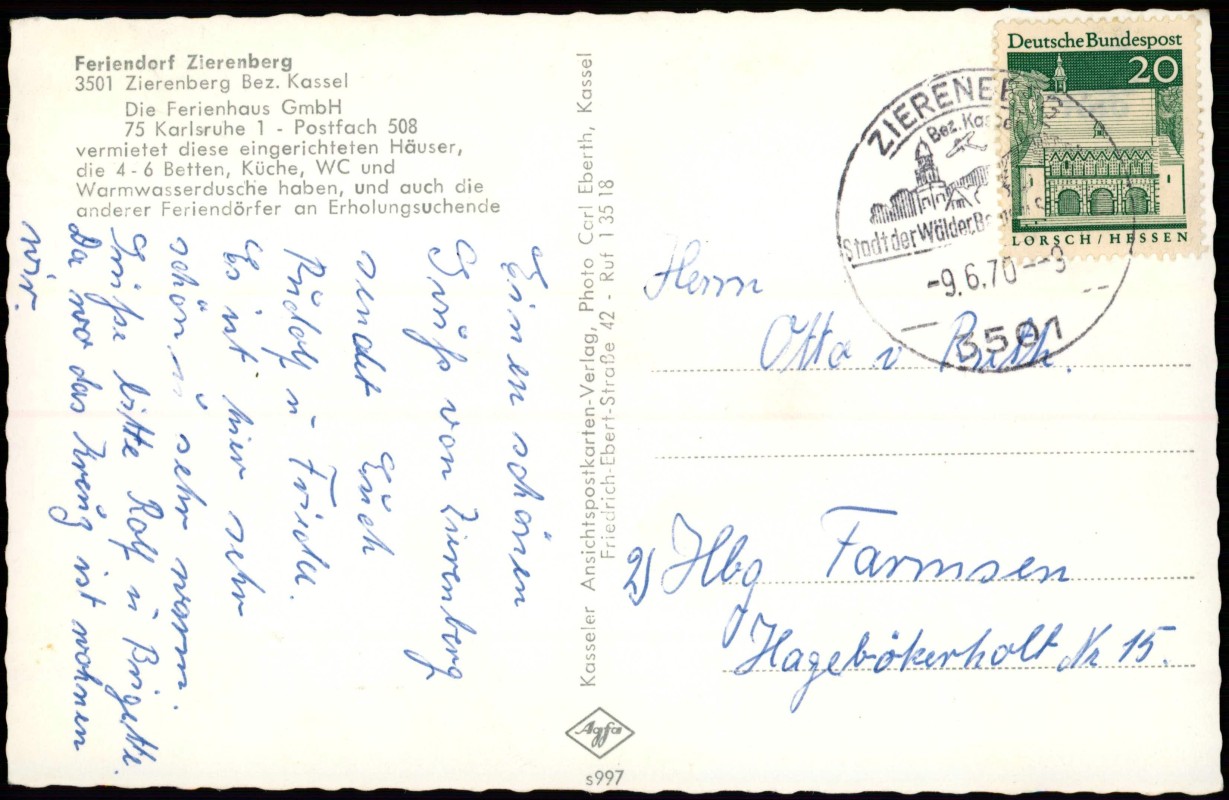 Feriendorf Zierenberg
3501 Zierenberg Bez. Kassel
Die Ferienhaus GmbH
75 Karlsruhe 1 - Postfach 508
vermietet diese eingerichteten Häuser,
die 4-6 Betten, Küche, WC und
Warmwasserdusche haben, und auch die
anderer Feriendörfer an Erholungsuchende
Einen schönen
Gruß von Zierenberg
sendet Euch
Rudolf u Frieda.
Es ist hier sehr
schön u sehr warm.
Grüße bitte Rolf u Brigitte.
Da wo das Kreuz ist wohnen
wir.
Kasseler Ansichtspostkarten-Verlag, Photo Carl Eberth, Kassel
Friedrich-Ebert-Straße 42 - Ruf 1 35 18
Agfa
s997
Deutsche Bundespost
20
LORSCH/HESSEN
ZIERENBERG
Bez. Kassel
Stadt der Wälder, Berge
-9.6.70--9
3501
Herrn
Otto v
2) Hbg Farmsen
Hagebökerholt Nr 15.